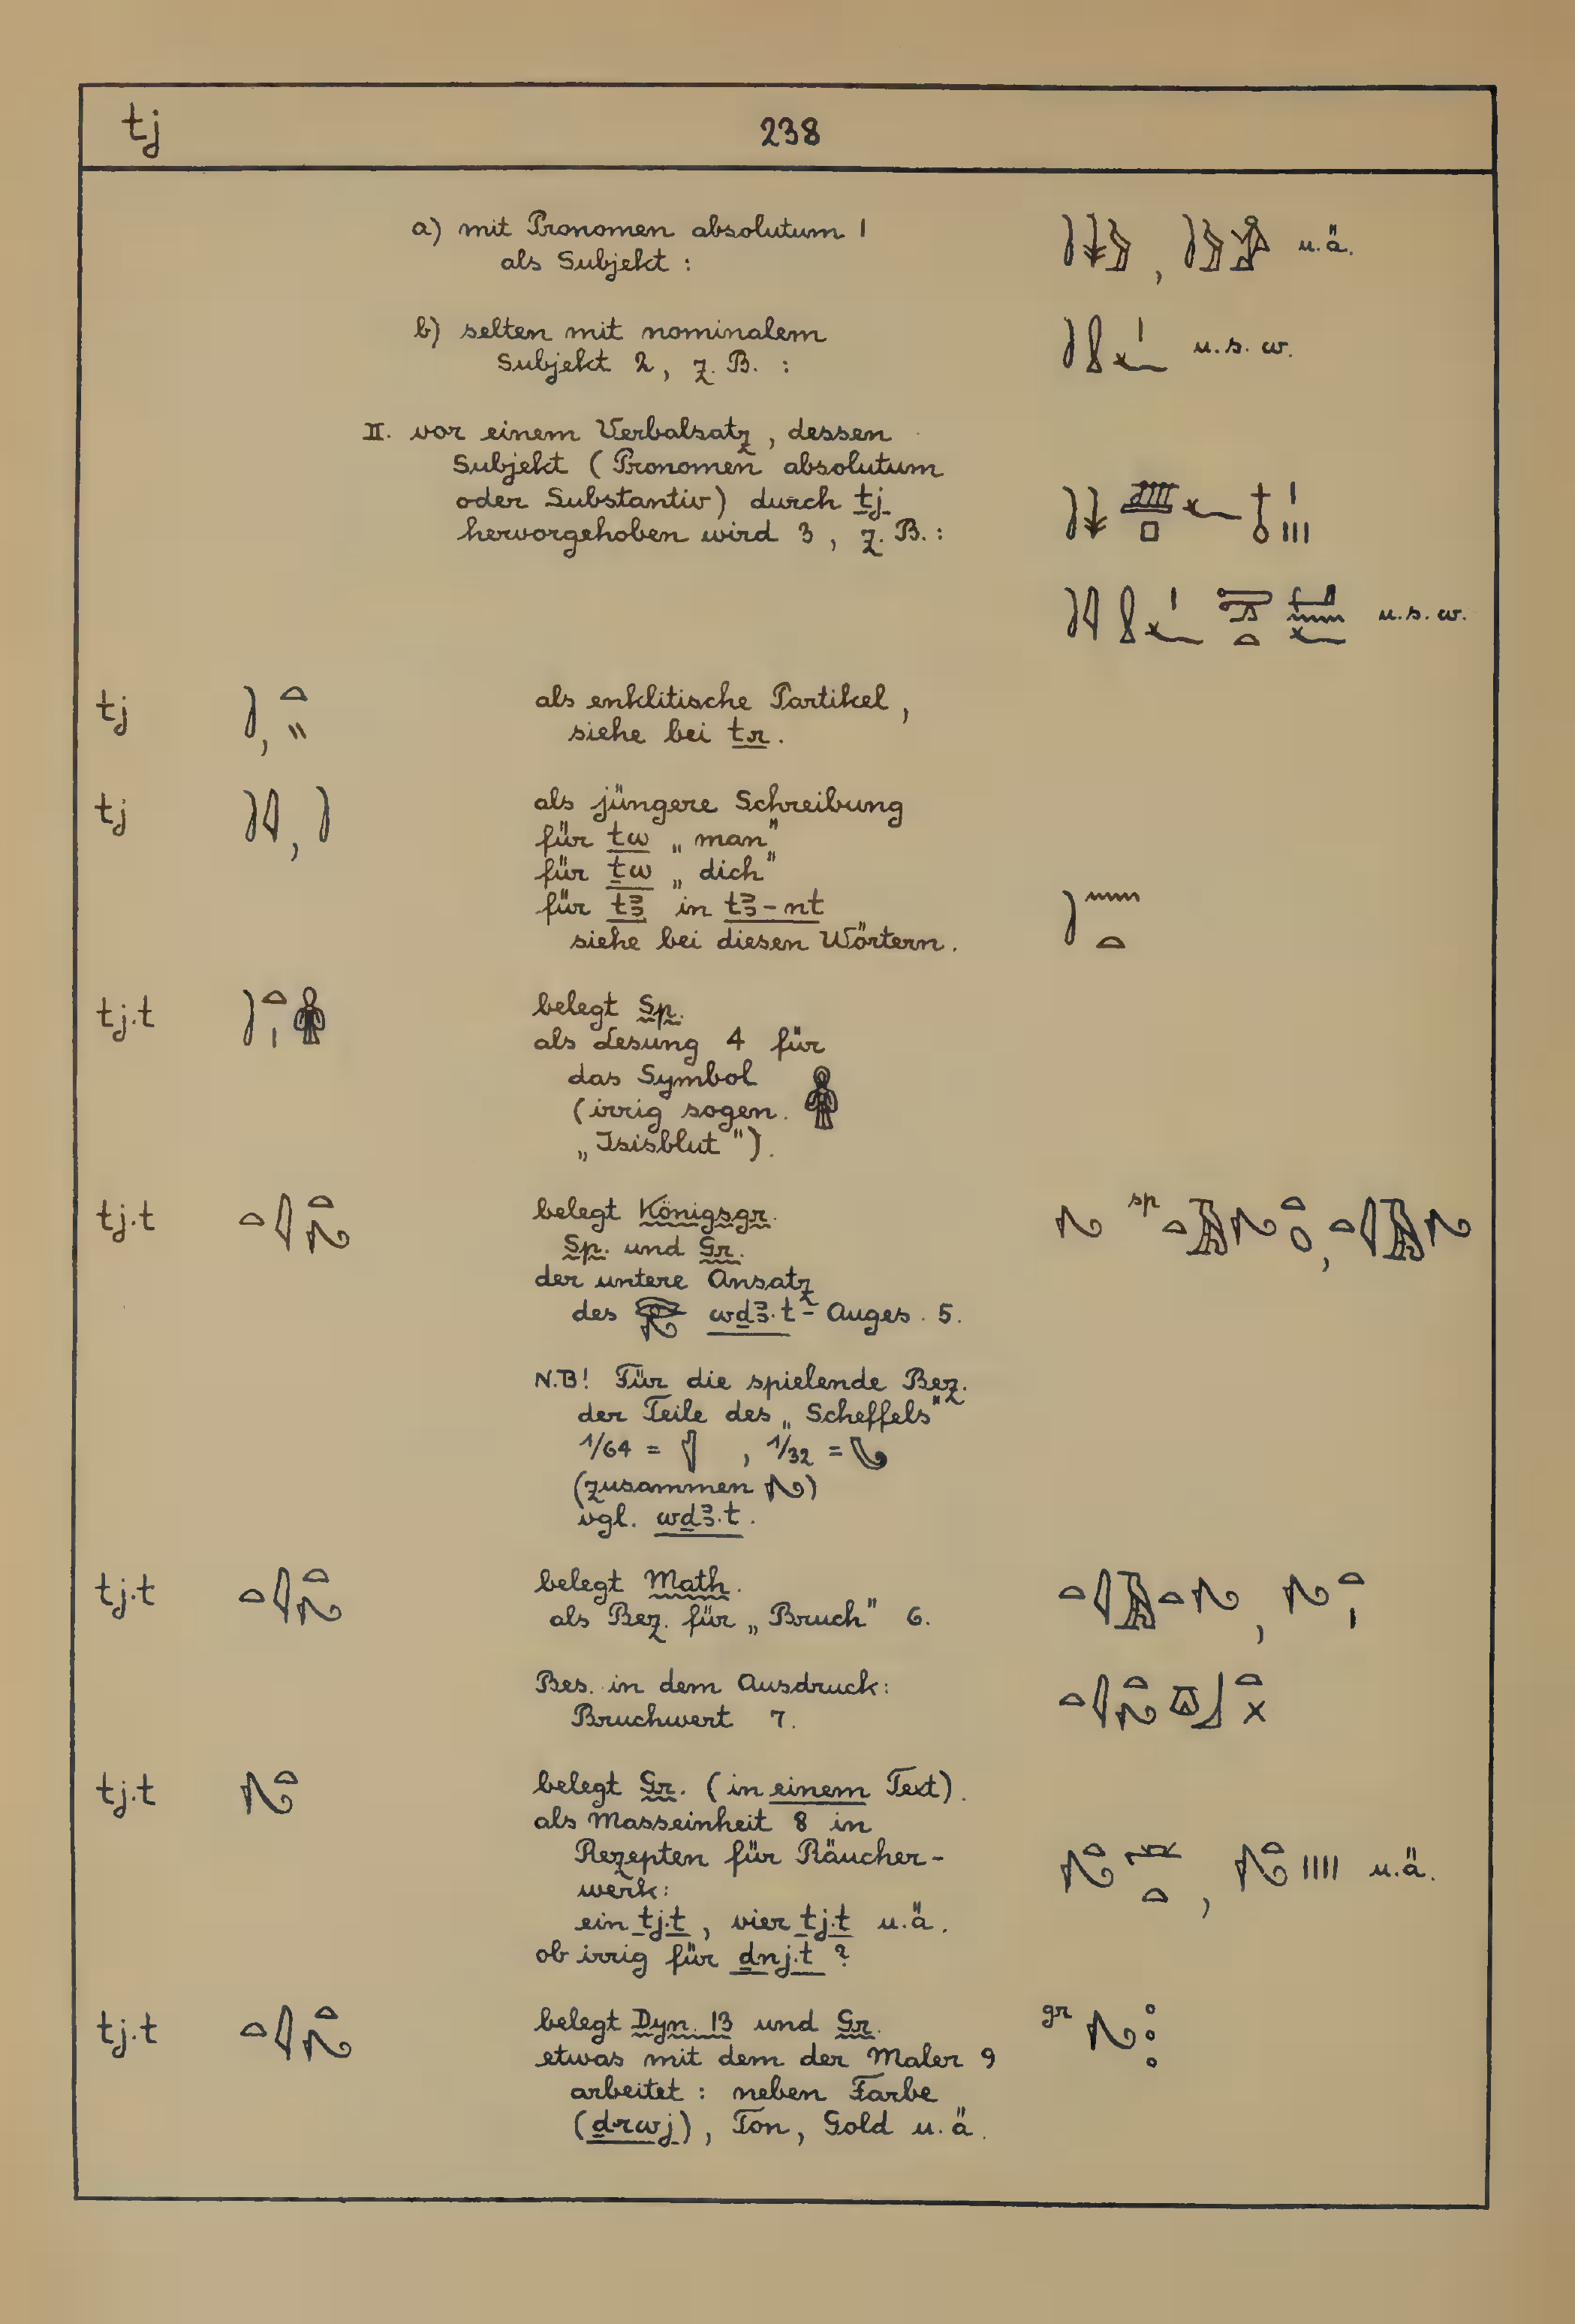 tj 238
a) mit Pronomen absolutum 1
als Subjekt :
u.ä.
b) selten mit nominalem
Subjekt 2, z. B. :
u. s. w.
II. vor einem Verbalsatz, dessen
Subjekt (Pronomen absolutum
oder Substantiv) durch tj
hervorgehoben wird 3, z. B. :
u. s. w.
tj als enklitische Partikel,
siehe bei tr.
tj als jüngere Schreibung
für tw „man"
für ṯw „dich"
für tꜣ in tꜣ-nt
siehe bei diesen Wörtern.
tj.t belegt Sp.
als Lesung 4 für
das Symbol
(irrig sogen.
„Isisblut").
tj.t belegt Königsgr. sp
Sp. und Gr.
der untere Ansatz
des wḏꜣ.t-Auges. 5.
N.B! Für die spielende Bez.
der Teile des „Scheffels"
1/64 = , 1/32 =
(zusammen )
vgl. wḏꜣ.t.
tj.t belegt Math.
als Bez. für „Bruch" 6.
Bes. in dem Ausdruck:
Bruchwert 7.
tj.t belegt Gr. (in einem Text).
als Masseinheit 8 in
Rezepten für Räucher-
werk: u.ä.
ein tj.t, vier tj.t u.ä.
ob irrig für dnj.t ?
tj.t belegt Dyn. 13 und Gr. gr
etwas mit dem der Maler 9
arbeitet : neben Farbe
(drwj), Ton, Gold u. ä.